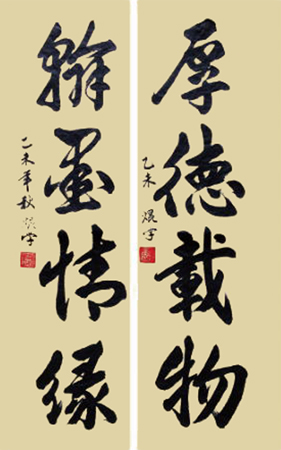 厚德载物
乙未
翰墨情缘
乙未年秋